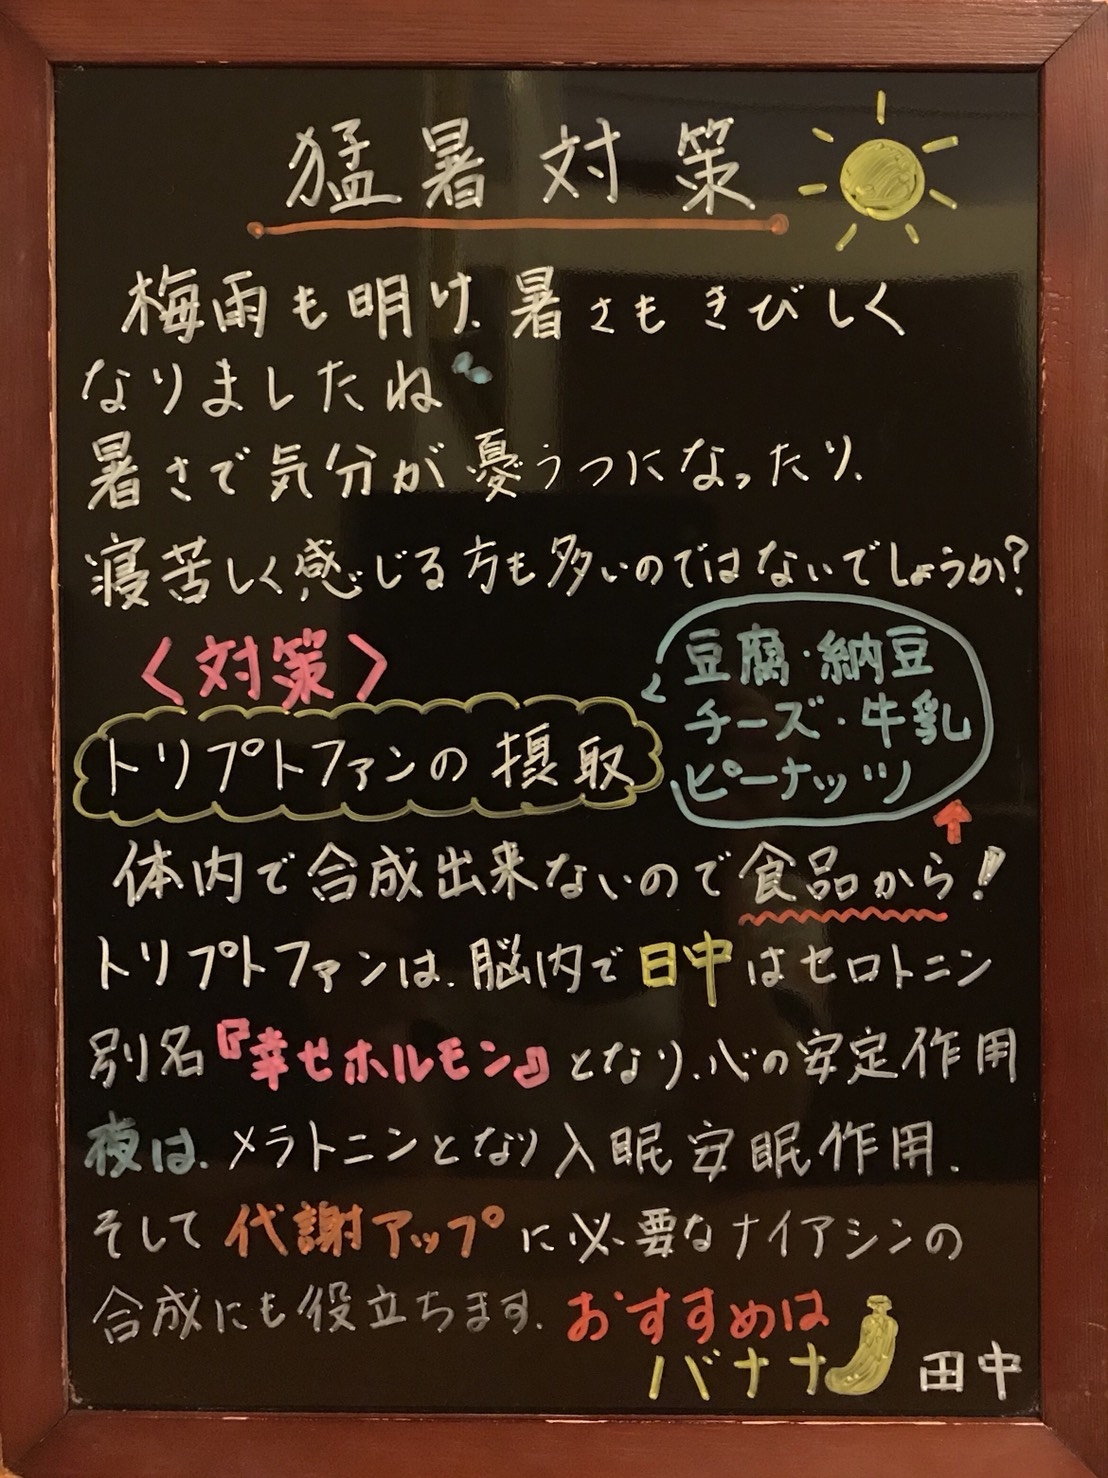 猛暑対策
梅雨も明け、暑さもきびしく
なりましたね
暑さで気分が憂うつになったり、
寝苦しく感じる方も多いのではないでしょうか?
〈対策〉
トリプトファンの摂取
豆腐・納豆
チーズ・牛乳
ピーナッツ
体内で合成出来ないので食品から!
トリプトファンは、脳内で日中はセロトニン
別名『幸せホルモン』となり、心の安定作用
夜は、メラトニンとなり入眠安眠作用、
そして代謝アップに必要なナイアシンの
合成にも役立ちます。おすすめは
バナナ 田中